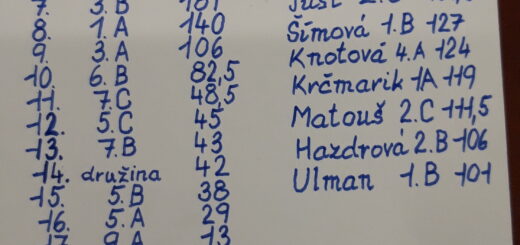 7. 3.B 181
8. 1.A 140
9. 3.A 106
10. 6.B 82,5
11. 7.C 48,5
12. 5.C 45
13. 7.B 43
14. družina 42
15. 5.B 38
16. 5.A 29
17. 9.A 13
Šímová 1.B 127
Knotová 4.A 124
Krčmarik 1A 119
Matouš 2.C 111,5
Hazdrová 2.B 106
Ulman 1.B 101